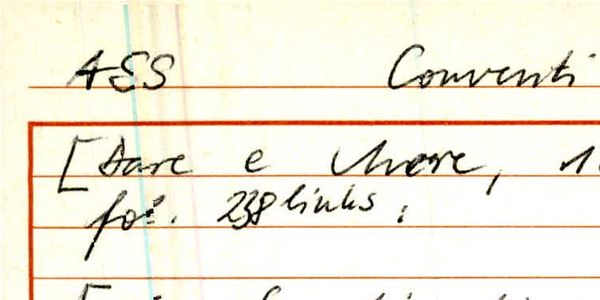 AES Conventi
[Dare e Havere, 1
fol. 238 links :